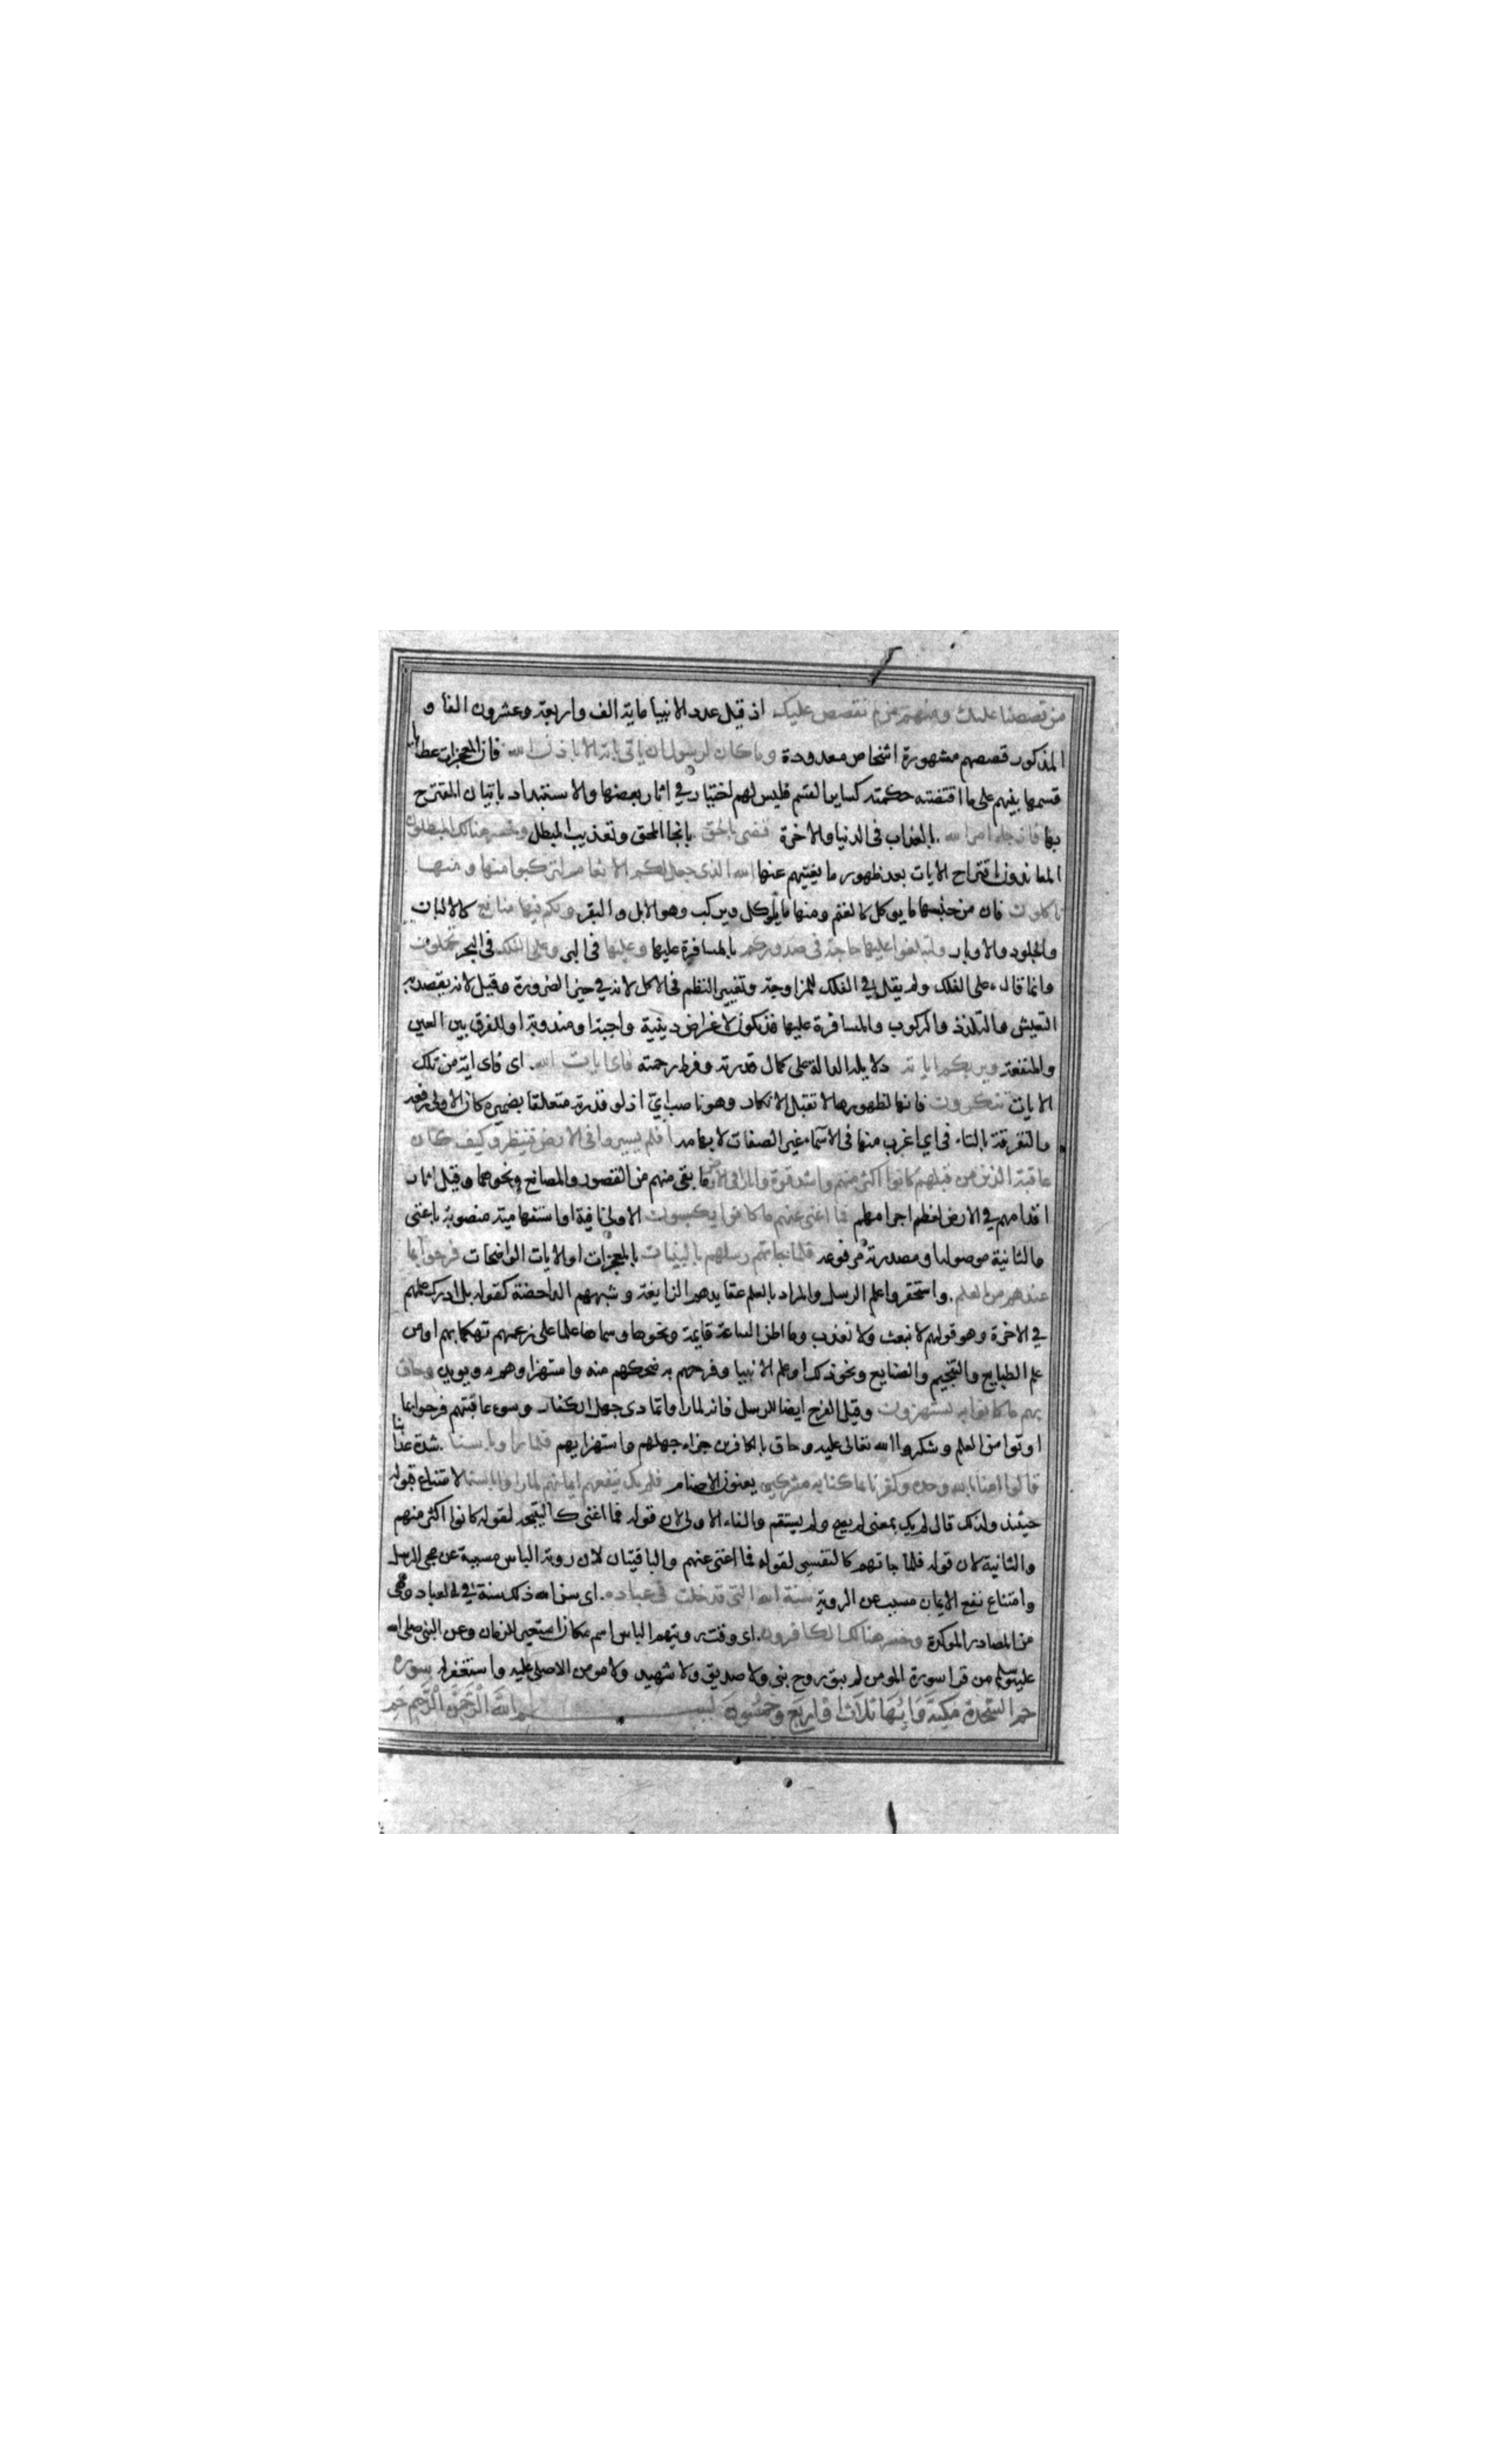 من قصصنا عليك ومنهم من لم نقصص عليك اذ قيل عدد الانبيا ماية الف واربعة وعشرون الفا و
المذكور قصصهم مشهورة اشخاص معدودة وما كان لرسول ان ياتي باية الا باذن الله فان المعجزات عطايا
قسمها بينهم على ما اقتضته حكمته كساير القسم فليس لهم اختيار في اثار بعضها والاستبداد باتيان المقترح
بها فاذا جاء امر الله بالعذاب في الدنيا والاخرة قضى بالحق بانجا المحق وتعذيب المبطل وخسر هنالك المبطلون
المعاندون باقتراح الايات بعد ظهور ما يغنيهم عنها الله الذي جعل لكم الانعام لتركبوا منها ومنها
تاكلون فان من جنسها ما يوكل كالغنم ومنها ما يوكل ويركب وهو الابل والبقر ولكم فيها منافع كالالبان
والجلود والاوبار ولتبلغوا عليها حاجة في صدوركم بالمسافرة عليها وعليها في البر وعلى الفلك في البحر تحملون
وانما قال على الفلك ولم يقل في الفلك للمزاوجة وتغيير النظم في الاكل لانه في حيز الضرورة وقيل لانه يقصد به
التعيش والتلذذ والركوب والمسافرة عليها قد يكون لاغراض دينية واجبة او مندوبة او للفرق بين العين
والمنفعة ويريكم اياته دلايله الدالة على كمال قدرته وفرط رحمته فاي ايات الله اي فاي اية من تلك
الايات تنكرون فانها لظهورها لا تقبل الانكار وهو ناصب اي اذ لو قدرته متعلقا بضميره كان الاولى رفعه
والتفرقة بالتاء في اي اغرب منها في الاسماء غير الصفات لابهامه افلم يسيروا في الارض فينظروا كيف كان
عاقبة الذين من قبلهم كانوا اكثر منهم واشد قوة واثارا في الارض ما بقي منهم من القصور والمصانع ونحوهما وقيل اثار
اقدامهم في الارض لعظم اجرامهم فما اغنى عنهم ما كانوا يكسبون الاولى نافية او استفهامية منصوبة باغنى
والثانية موصولة او مصدرية مرفوعه فلما جاتهم رسلهم بالبينات بالمعجزات او الايات الواضحات فرحوا بما
عندهم من العلم واستحقروا علم الرسل والمراد بالعلم عقايدهم الزايغة وشبههم الداحضة كقوله بل ادرك علمهم
في الاخرة وهو قولهم لا نبعث ولا نعذب وما اظن الساعة قايمة ونحوها وسماها علما على زعمهم تهكما بهم او من
علم الطبايع والتنجيم والصنايع ونحو ذلك او علم الانبيا وفرحهم به ضحكهم منه واستهزاوهم به ويويده وحاق
بهم ما كانوا به يستهزون وقيل الفرح ايضا للرسل فانه لما راوا تمادى جهل الكفار وسوء عاقبتهم فرحوا بما
اوتوا من العلم وشكروا الله تعالى عليه وحاق بالكافرين جزاء جهلهم واستهزايهم فلما راوا باسنا شدة عذابنا
قالوا امنا بالله وحده وكفرنا بما كنا به مشركين يعنون الاصنام فلم يك ينفعهم ايمانهم لما راوا باسنا لامتناع قبوله
حينيذ ولذلك قال لم يك بمعنى لم يصح ولم يستقم والفاء الاولى لان قوله فما اغنى كالنتيجة لقوله كانوا اكثر منهم
والثانية لان قوله فلما جاتهم كالتفسير لقوله فما اغنى عنهم والباقيتان لان روية الباس مسببة عن مجي الرسل
وامتناع نفع الايمان مسبب عن الروية سنة الله التي قد خلت في عباده اي سن الله ذلك سنة في العباد وهي
من المصادر الموكدة وخسر هنالك الكافرون اي وقت رويتهم الباس اسم مكان استعير للزمان وعن النبي صلى الله
عليه وسلم من قرا سورة المومن لم يبق روح نبي ولا صديق ولا شهيد ولا مومن الا صلى عليه واستغفر له سورة
حم السجدة مكية وايها ثلاث او اربع وخمسون بسم الله الرحمن الرحيم حم